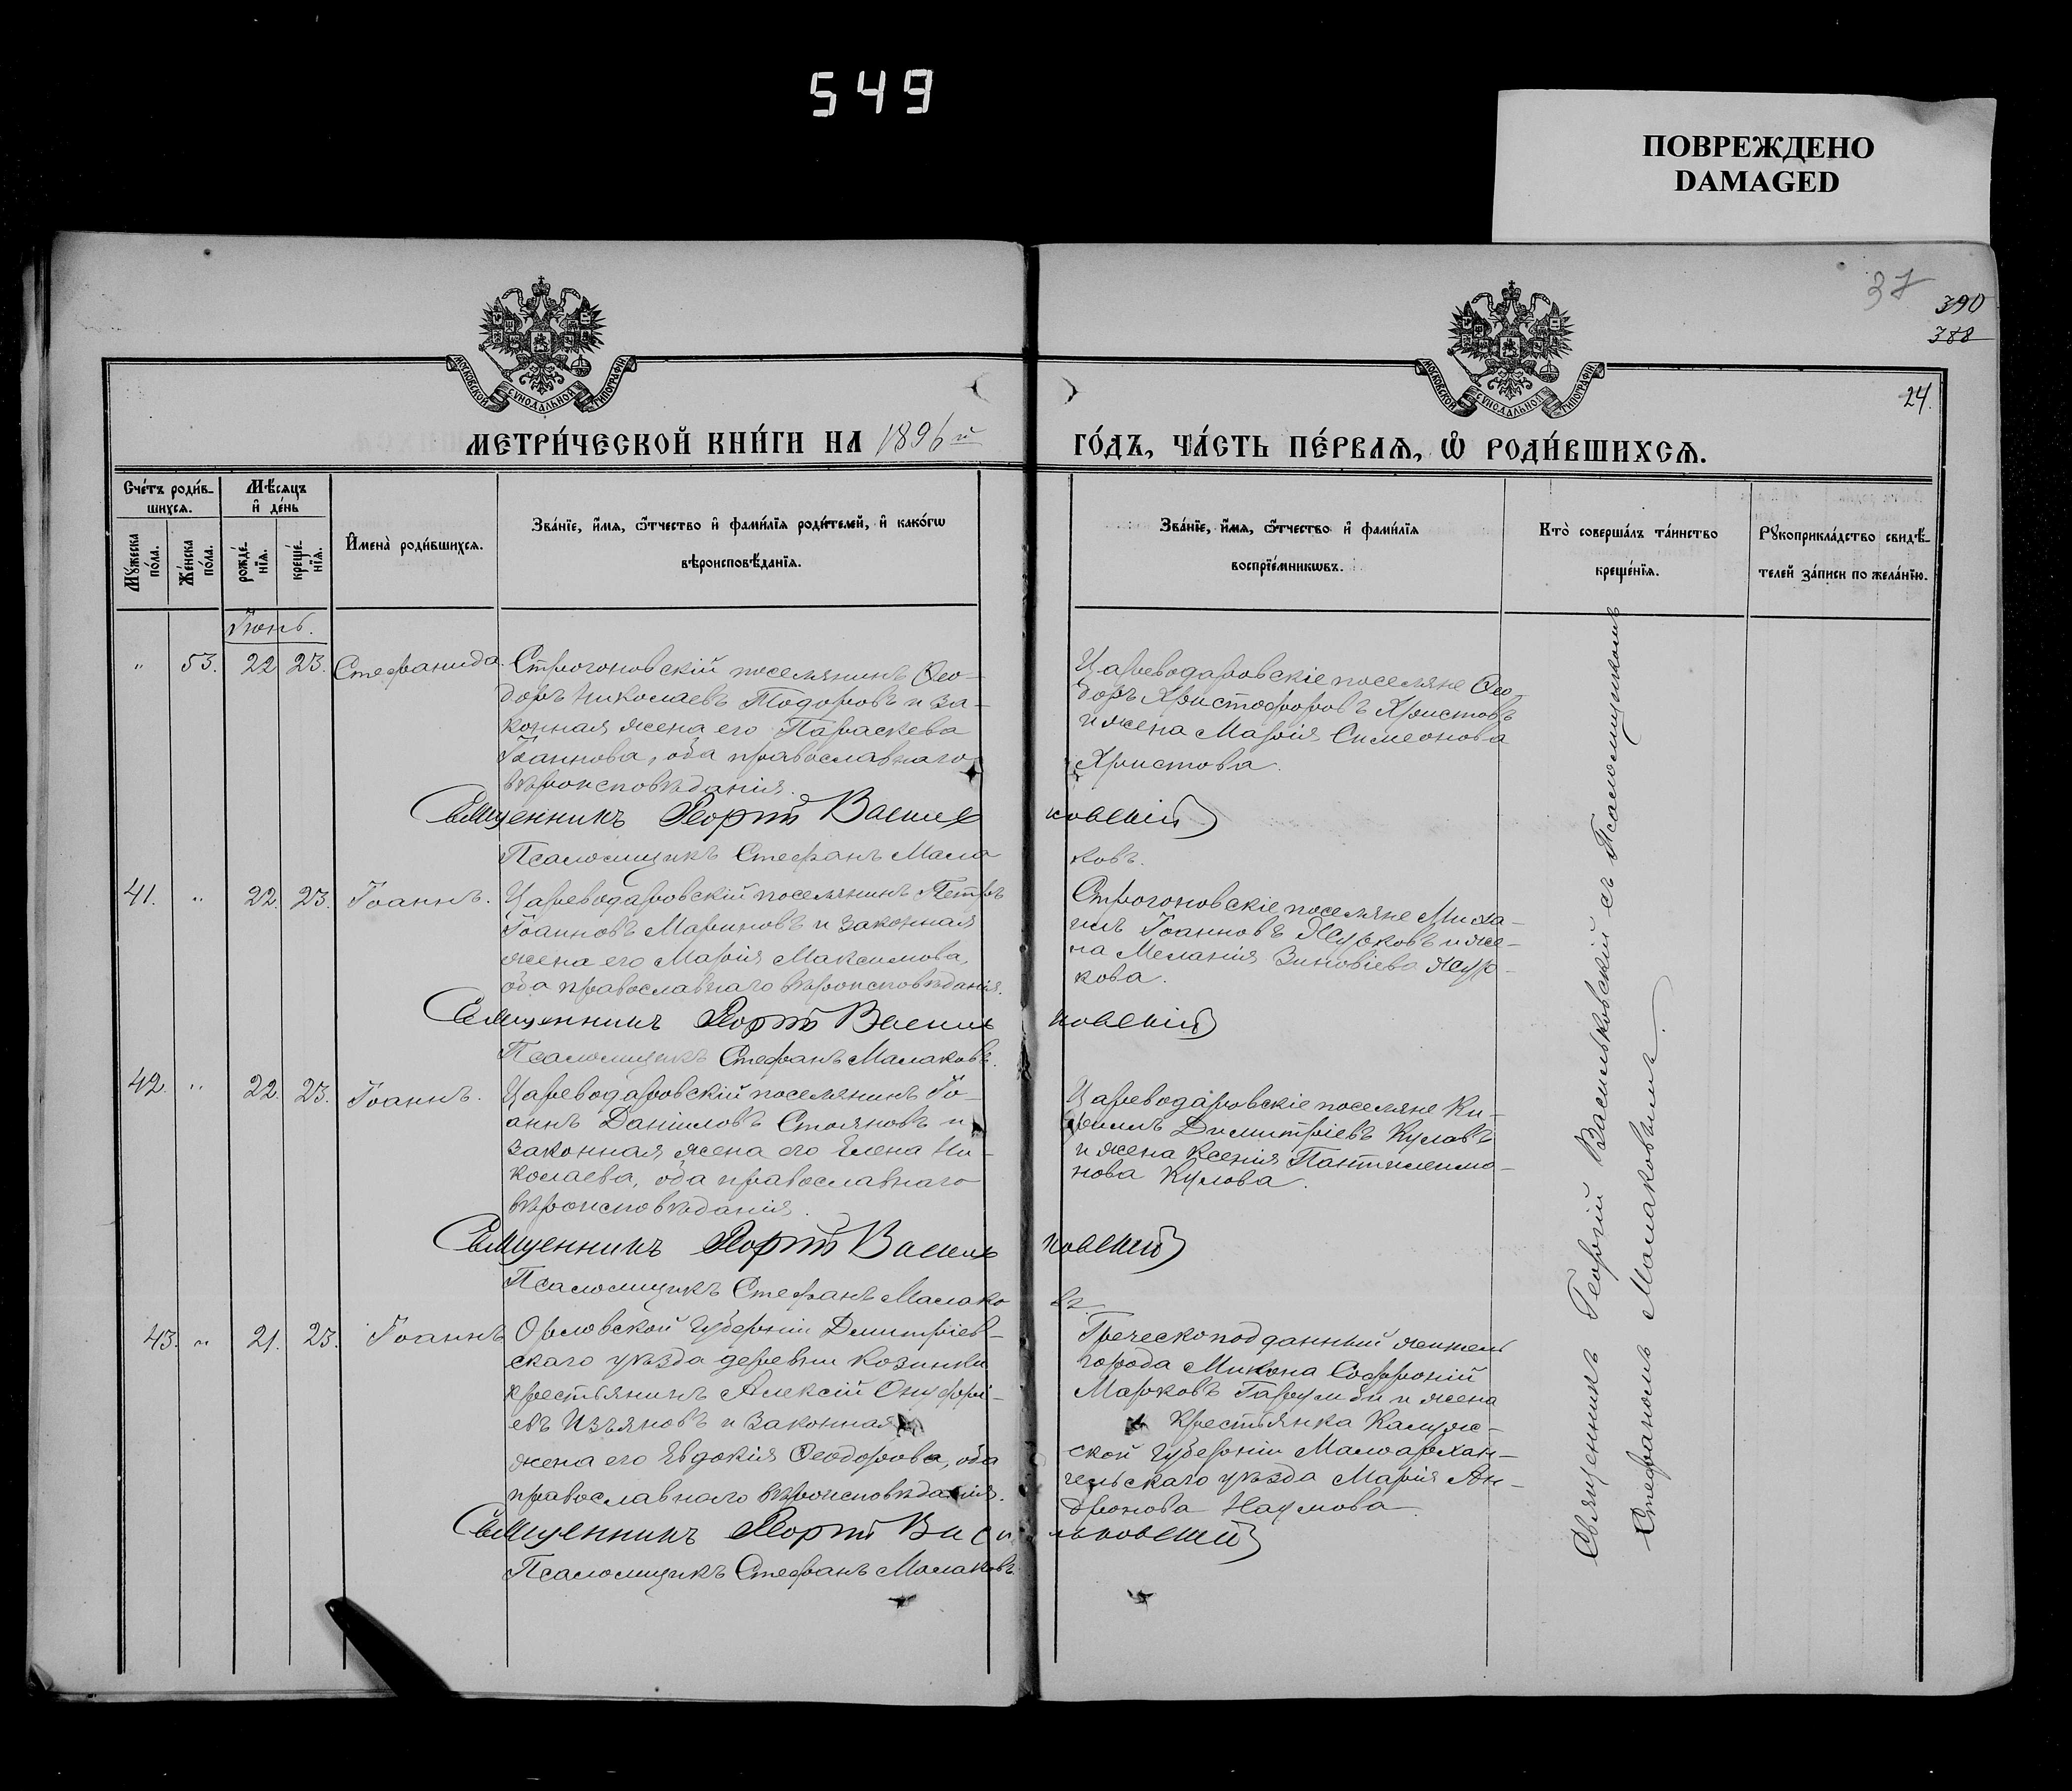 549
ПОВРЕЖДЕНО
DAMAGED
37
390
388
24.
МОСКОВСКОЙ СѴНОДАЛЬНОЙ ТИПОГРАФІИ
МОСКОВСКОЙ СѴНОДАЛЬНОЙ ТИПОГРАФІИ
МЕТРИ́ЧЕСКОЙ КНИ́ГИ НА 1896й
ГО́ДЪ, ЧА́СТЬ ПЕ́РВАѦ, Ѡ҆ РОДИ́ВШИХСѦ.
Сче́тъ роди́в-
шихсѧ.
Мѣ́сѧцъ
и҆ де́нь
Мꙋ́жеска по́ла.
Же́нска по́ла.
рожде́-
нїѧ.
креще́-
нїѧ.
И҆мена̀ роди́вшихсѧ.
Зва́нїе, и҆́мѧ, ѻ҆́тчество и҆ фами́лїѧ роди́телей, и҆ како́гѡ
вѣроисповѣ́данїѧ.
Зва́нїе, и҆́мѧ, ѻ҆́тчество и҆ фами́лїѧ
воспрїе́мникѡвъ.
Кто̀ соверша́лъ та́инство
креще́нїѧ.
Рꙋкоприкла́дство свидѣ́-
телей за́писи по жела́нїю.
Іюнь.
" 53. 22 23. Стефанида. Строгоновскій поселянинъ Ѳео-
доръ Николаевъ Тодоровъ и за-
конная жена его Параскева
Іоаннова, оба православнаго
вѣроисповѣданія.
Царeводаровскіе поселяне Ѳео-
доръ Христофоровъ Христовъ
и жена Марія Симеонова
Христова.
Священникъ Георгій Васильковскій
Псаломщикъ Стефанъ Малаковъ.
41. " 22. 23. Іоаннъ. Цареводаровскій поселянинъ Петръ
Іоанновъ Мариновъ и законная
жена его Марія Максимова,
оба православнаго вѣроисповѣданія.
Строгоновскіе поселяне Миха-
илъ Іоанновъ Жерковъ и же-
на Меланія Зиновіева
кова.
Священникъ Георгій Васильковскій
Псаломщикъ Стефанъ Малаковъ.
42. " 22. 23. Іоаннъ. Цареводаровскій поселянинъ Іо-
аннъ Даніиловъ Стояновъ и
законная жена его Елена Ни-
колаева, оба православнаго
вѣроисповѣданія.
Цареводаровскіе поселяне Ки-
риллъ Димитріевъ Куловъ
и жена Ксенія Пантилеимо-
нова Кулова.
Священникъ Георгій Васильковскій
Псаломщикъ Стефанъ Малаковъ.
43. " 21. 23. Іоаннъ Орловской губерніи Дмитріев-
скаго уѣзда деревни Козинки
крестьянинъ Алексій Онуфрі-
евъ Изъяновъ и законная
жена его Евдокія Ѳеодорова, оба
православнаго вѣроисповѣданія.
Греческоподданный житель
города Микона Софроній
Марковъ и жена
крестьянка Калуж-
ской губерніи Малоархан-
гельскаго уѣзда Марія Ан-
дронова Наумова.
Священникъ Георгій Васильковскій
Псаломщикъ Стефанъ Малаковъ
Священникъ Георгій Васильковскій съ Псаломщикомъ
Стефаномъ Малаковымъ.